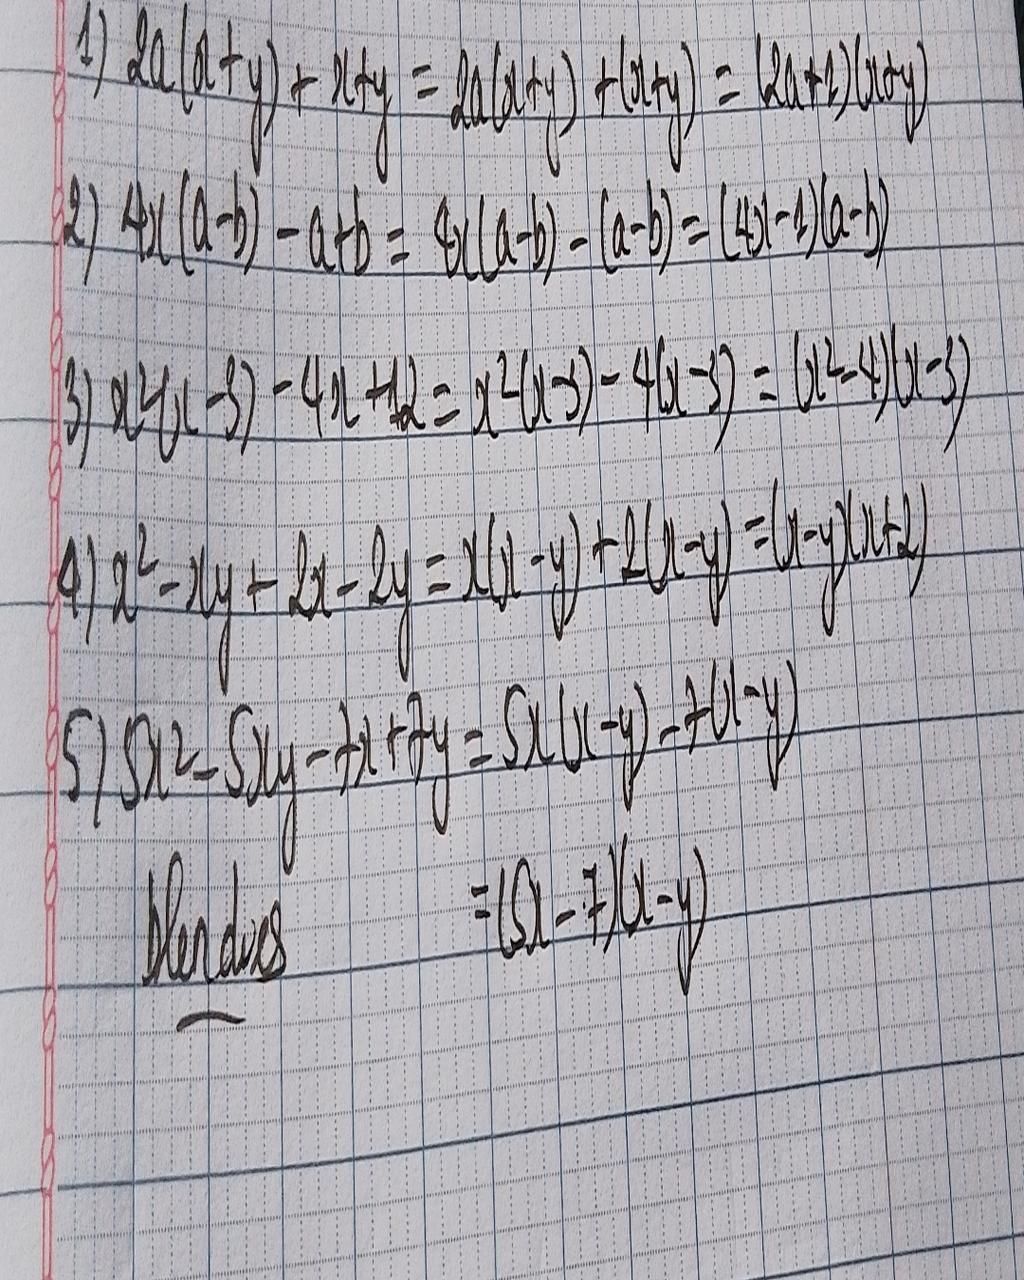 1) 2a(x+y) + x+y = 2a(x+y) + (x+y) = (2a+1)(x+y)
2) 4x(a-b) - a+b = 4x(a-b) - (a-b) = (4x-1)(a-b)
3) x²(x-3) - 4x + 12 = x²(x-3) - 4(x-3) = (x²-4)(x-3)
4) x² - xy + 2x - 2y = x(x-y) + 2(x-y) = (x-y)(x+2)
5) 5x² - 5xy - 7x + 7y = 5x(x-y) - 7(x-y)
= (5x - 7)(x-y)